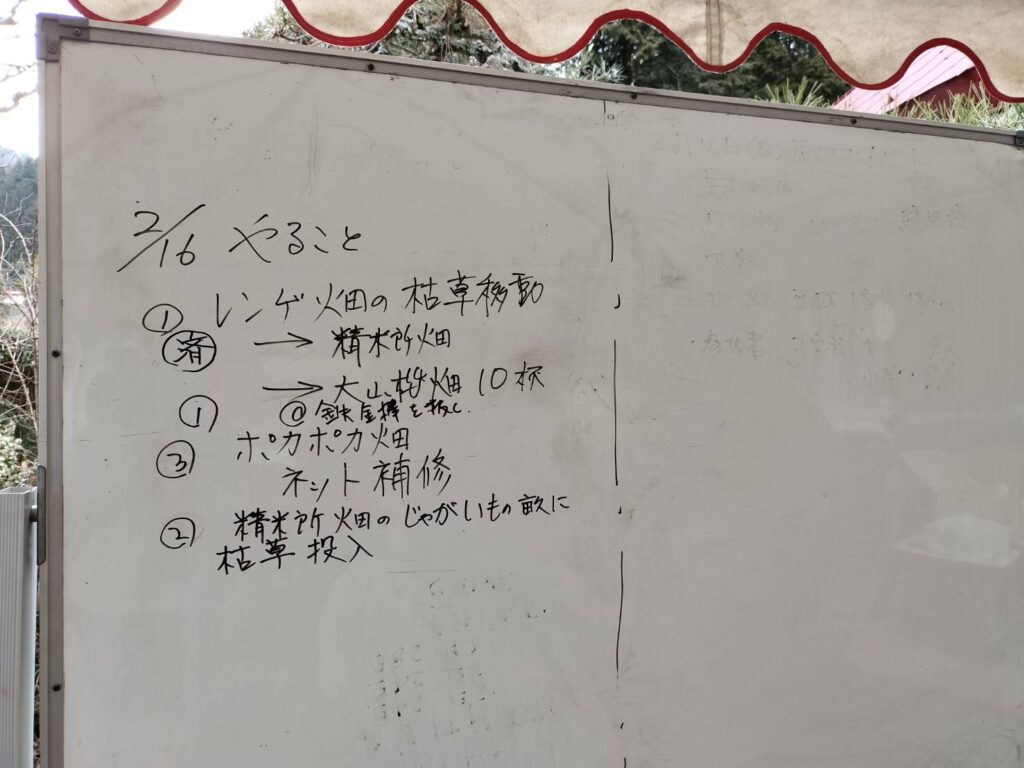 2/16 やること
① レンゲ畑の枯草移動
済 → 精米所畑
→ 大山 畑 10杯
① @ 鉄 を
③ ポカポカ畑
ネット補修
② 精米所畑のじゃがいもの畝に
枯草投入